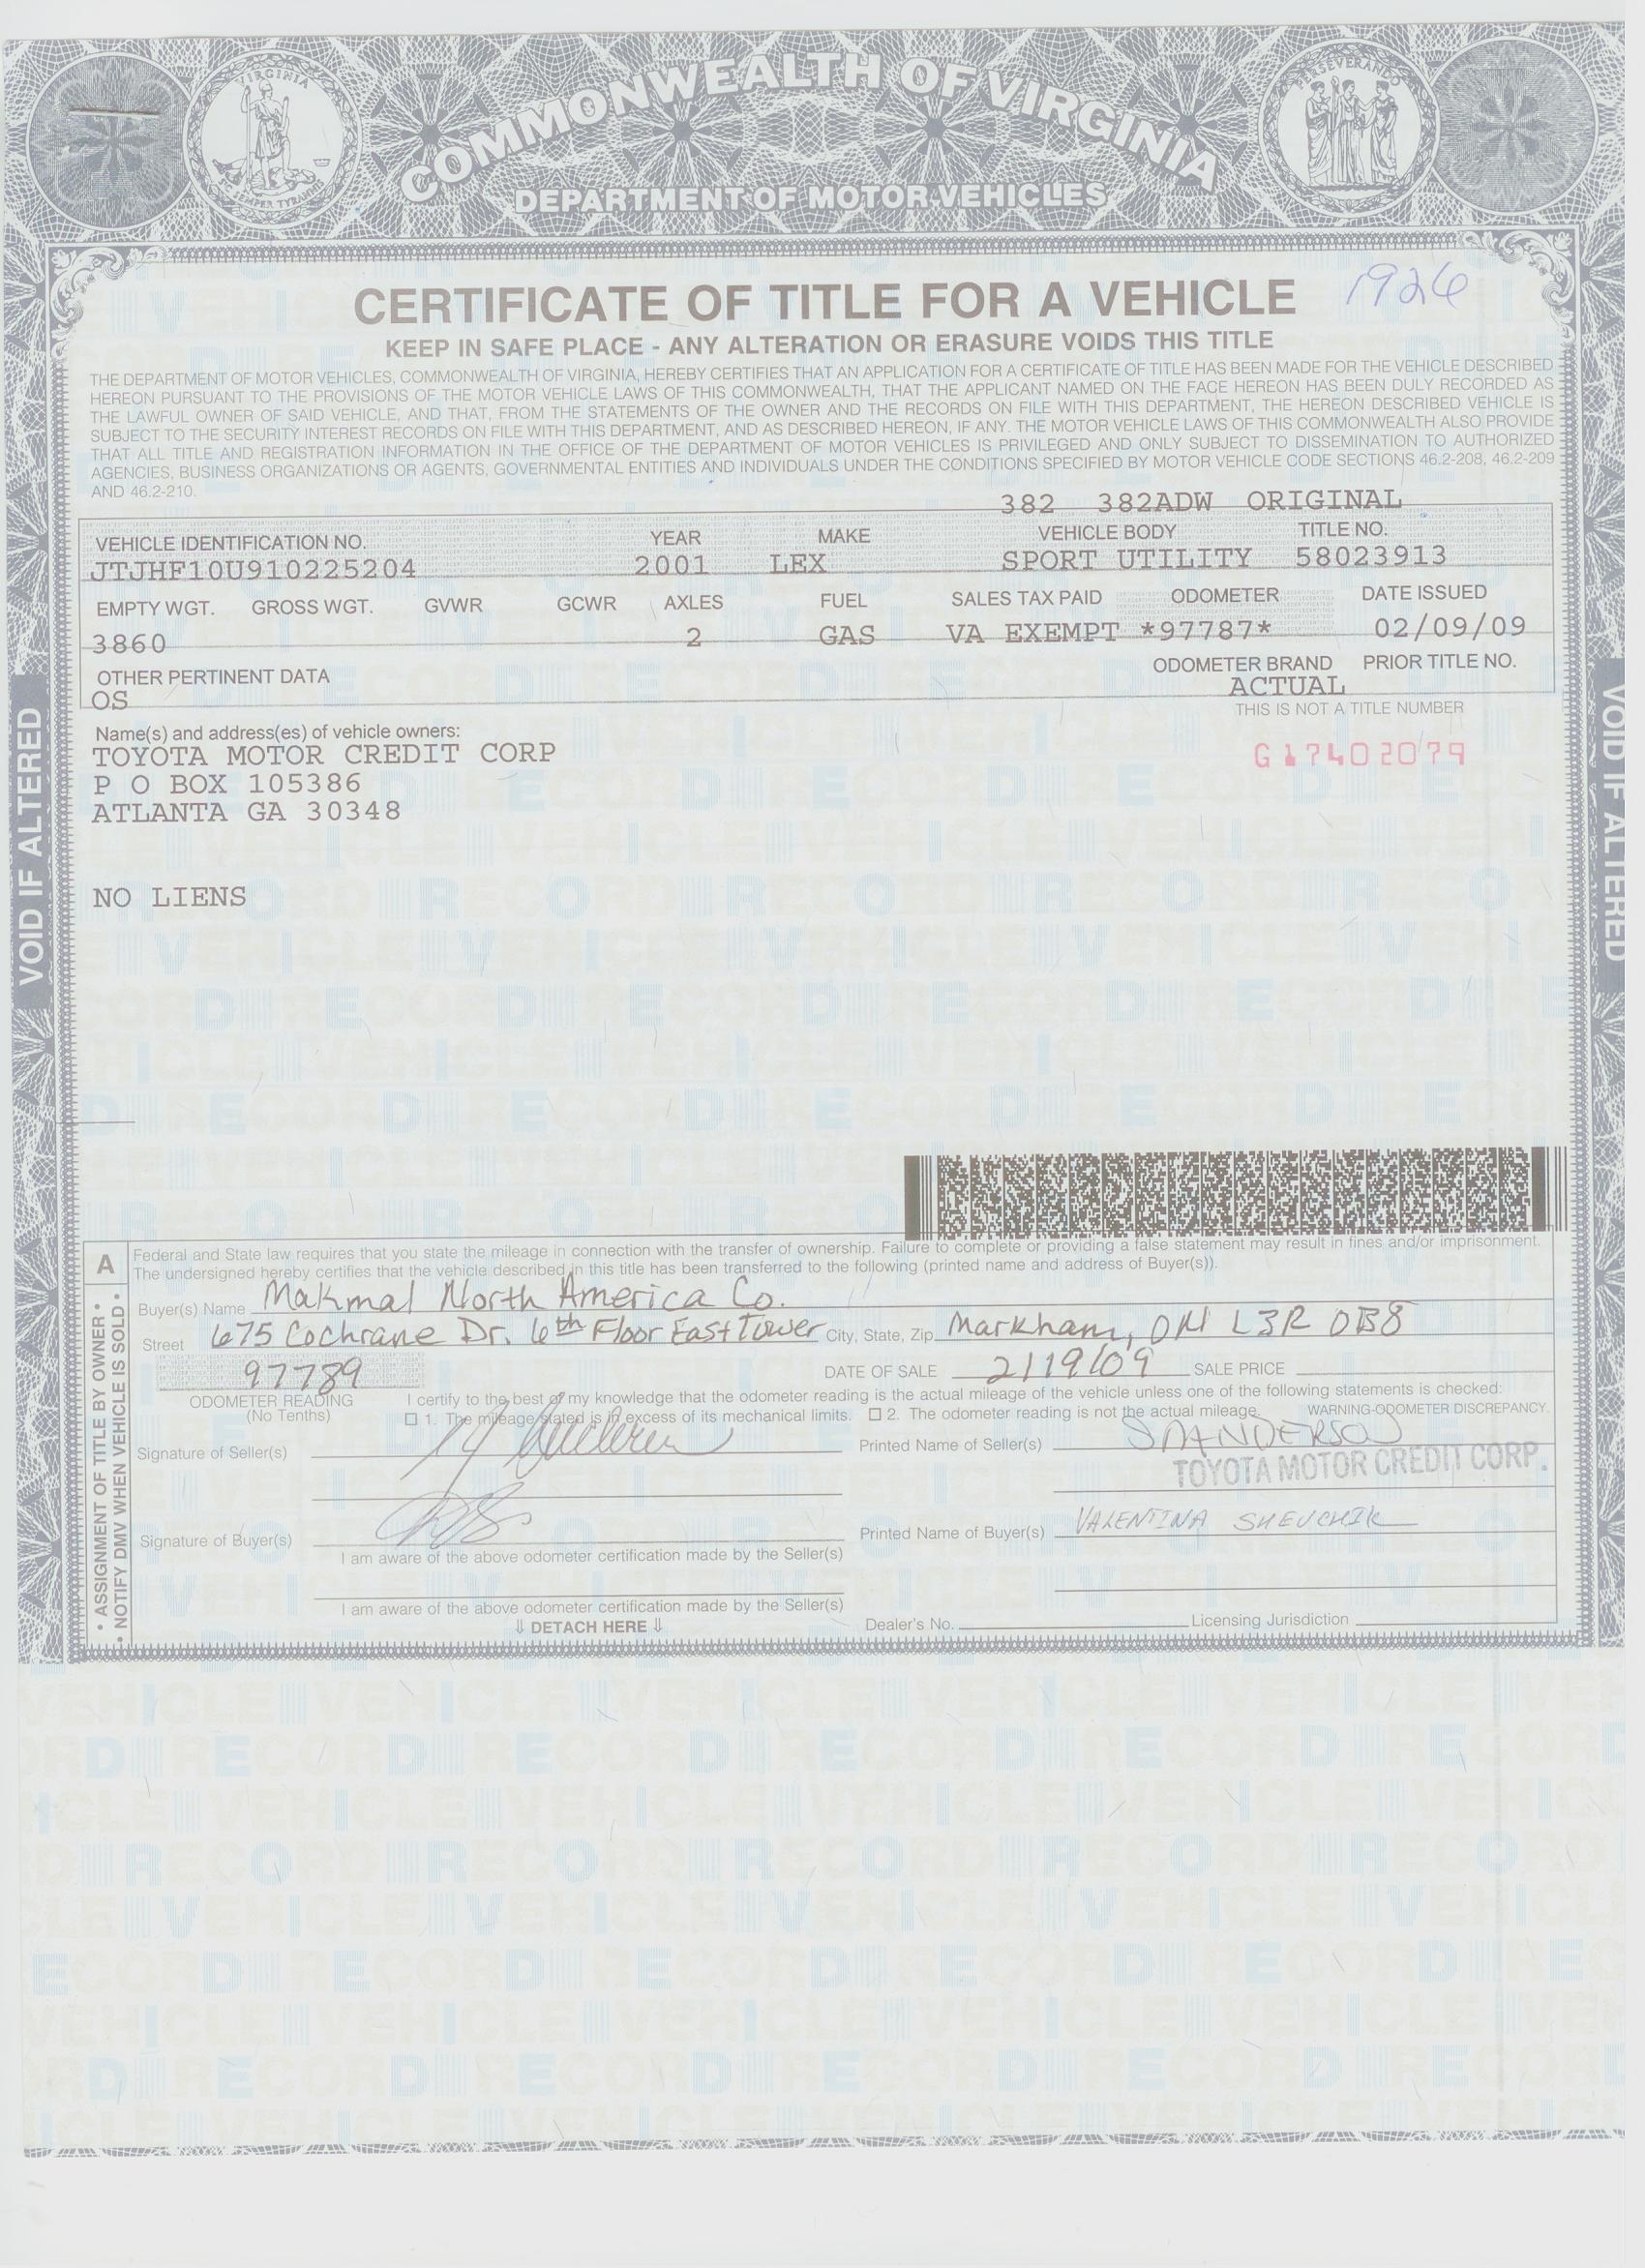 COMMONWEALTH OF VIRGINIA
VIRGINIA
PERSEVERANDO
DEPARTMENT OF MOTOR VEHICLES
CERTIFICATE OF TITLE FOR A VEHICLE 1926
KEEP IN SAFE PLACE - ANY ALTERATION OR ERASURE VOIDS THIS TITLE
THE DEPARTMENT OF MOTOR VEHICLES, COMMONWEALTH OF VIRGINIA, HEREBY CERTIFIES THAT AN APPLICATION FOR A CERTIFICATE OF TITLE HAS BEEN MADE FOR THE VEHICLE DESCRIBED
HEREON PURSUANT TO THE PROVISIONS OF THE MOTOR VEHICLE LAWS OF THIS COMMONWEALTH, THAT THE APPLICANT NAMED ON THE FACE HEREON HAS BEEN DULY RECORDED AS
THE LAWFUL OWNER OF SAID VEHICLE, AND THAT, FROM THE STATEMENTS OF THE OWNER AND THE RECORDS ON FILE WITH THIS DEPARTMENT, THE HEREON DESCRIBED VEHICLE IS
SUBJECT TO THE SECURITY INTEREST RECORDS ON FILE WITH THIS DEPARTMENT, AND AS DESCRIBED HEREON, IF ANY. THE MOTOR VEHICLE LAWS OF THIS COMMONWEALTH ALSO PROVIDE
THAT ALL TITLE AND REGISTRATION INFORMATION IN THE OFFICE OF THE DEPARTMENT OF MOTOR VEHICLES IS PRIVILEGED AND ONLY SUBJECT TO DISSEMINATION TO AUTHORIZED
AGENCIES, BUSINESS ORGANIZATIONS OR AGENTS, GOVERNMENTAL ENTITIES AND INDIVIDUALS UNDER THE CONDITIONS SPECIFIED BY MOTOR VEHICLE CODE SECTIONS 46.2-208, 46.2-209
AND 46.2-210.
382 382ADW ORIGINAL
VEHICLE IDENTIFICATION NO. YEAR MAKE VEHICLE BODY TITLE NO.
JTJHF10U910225204 2001 LEX SPORT UTILITY 58023913
EMPTY WGT. GROSS WGT. GVWR GCWR AXLES FUEL SALES TAX PAID ODOMETER DATE ISSUED
3860 2 GAS VA EXEMPT *97787* 02/09/09
OTHER PERTINENT DATA ODOMETER BRAND PRIOR TITLE NO.
OS ACTUAL
THIS IS NOT A TITLE NUMBER
Name(s) and address(es) of vehicle owners:
TOYOTA MOTOR CREDIT CORP G17402079
P O BOX 105386
ATLANTA GA 30348
NO LIENS
VOID IF ALTERED
VOID IF ALTERED
A
• ASSIGNMENT OF TITLE BY OWNER •
• NOTIFY DMV WHEN VEHICLE IS SOLD •
Federal and State law requires that you state the mileage in connection with the transfer of ownership. Failure to complete or providing a false statement may result in fines and/or imprisonment.
The undersigned hereby certifies that the vehicle described in this title has been transferred to the following (printed name and address of Buyer(s)).
Buyer(s) Name Makmal North America Co.
Street 675 Cochrane Dr. 6th Floor East Tower City, State, Zip Markham, ON L3R 0B8
97789 DATE OF SALE 2/19/09 SALE PRICE
ODOMETER READING I certify to the best of my knowledge that the odometer reading is the actual mileage of the vehicle unless one of the following statements is checked:
(No Tenths) 1. The mileage stated is in excess of its mechanical limits. 2. The odometer reading is not the actual mileage. WARNING-ODOMETER DISCREPANCY.
Signature of Seller(s) Printed Name of Seller(s) S ANDERSON
TOYOTA MOTOR CREDIT CORP.
Signature of Buyer(s) Printed Name of Buyer(s) VALENTINA SHEVCHIK
I am aware of the above odometer certification made by the Seller(s)
I am aware of the above odometer certification made by the Seller(s)
⇓ DETACH HERE ⇓ Dealer's No. Licensing Jurisdiction